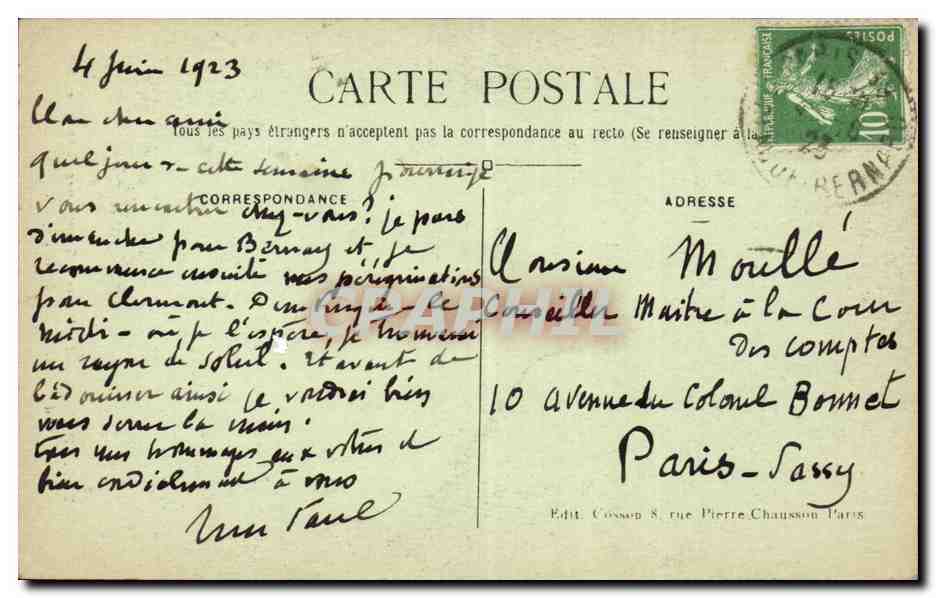 4 Juin 1923
CARTE POSTALE
Mon cher ami
Tous les pays étrangers n'acceptent pas la correspondance au recto (Se renseigner à la
Quel jour cette semaine pourrai-je
vous rencontrer chez-vous? je pars
CORRESPONDANCE
dimanche pour Bernay et je
recommence ensuite mes pérégrinations
pour Clermont. le
midi - où je l'espère, je trouverai
un rayon de soleil. Et avant de
ainsi je voudrais bien
vous serrer la main.
Tous mes hommages aux vôtres et
bien cordialement à vous
Paul
ADRESSE
Monsieur Moullé
Conseiller Maitre à la Cour
des comptes
10 avenue du Colonel Bonnet
Paris-Passy
Edit. Cosson 8, rue Pierre Chausson Paris
REPUBLIQUE FRANÇAISE
POSTES
10
23
BERNARD
CPAPHIL